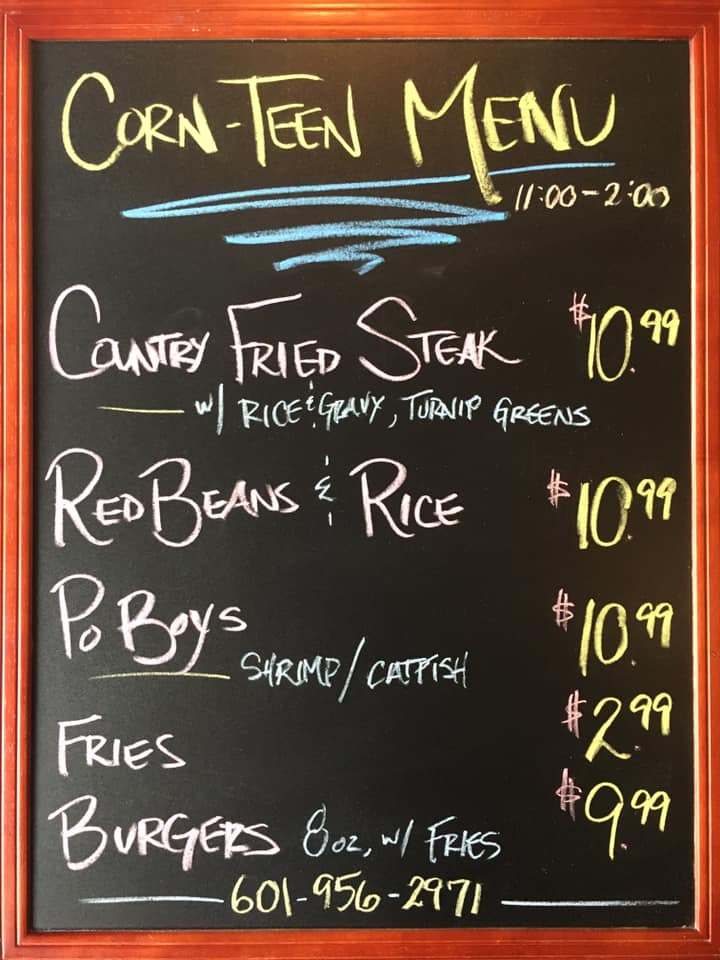 CORN-TEEN MENU
11:00-2:00
COUNTRY FRIED STEAK $10.99
w/ RICE & GRAVY, TURNIP GREENS
RED BEANS & RICE $10.99
PO BOYS $10.99
SHRIMP/CATFISH
FRIES $2.99
BURGERS 8oz, w/ FRIES $9.99
601-956-2971